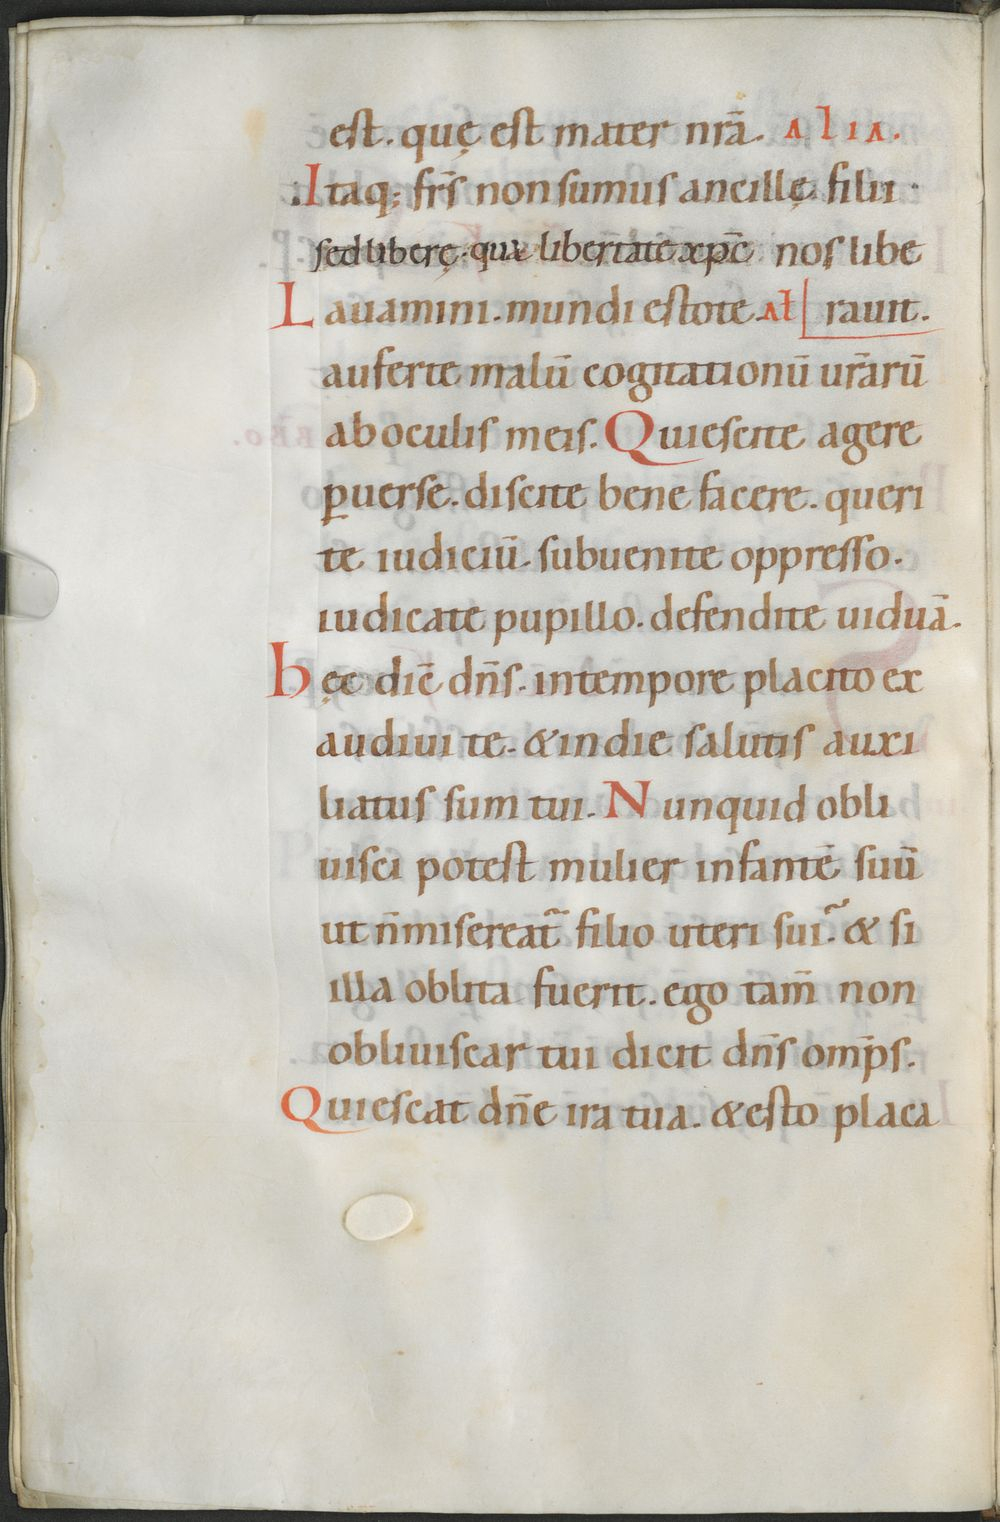 est. quę est mater nr̄a. ALIA.
.Itaq; fr̄s non sumus ancillę filii.
sed liberę. qua libertate xp̄c nos libe
Lauamini. mundi estote. Al̄ rauit.
auferte malū cogitationū ur̄arū
ab oculis meis. Quiescite agere
ꝑuerse. discite bene facere. queri
te iudiciū. subuenite oppresso.
iudicate pupillo. defendite uiduā.
hęc diē dn̄s. in tempore placito ex
audiui te. & in die salutis auxi
liatus sum tui. Nunquid obli
uisci potest mulier infantē suū
ut n̄ misereat̄ filio uteri sui? & si
illa oblita fuerit. ego tam̄ non
obliuiscar tui dicit dn̄s om̄ps.
Quiescat dn̄e ira tua. & esto placa